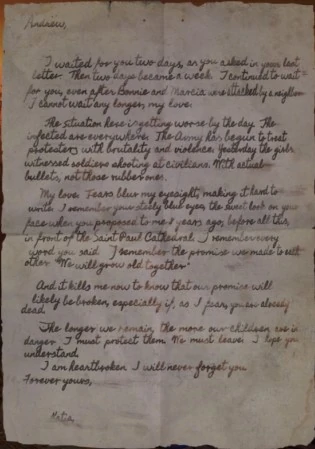 Andrew,
I waited for you two days, as you asked in your last
letter. Then two days became a week. I continued to wait
for you, even after Bonnie and Marcia were attacked by a neighbor.
I cannot wait any longer, my love.
The situation here is getting worse by the day. The
infected are everywhere. The Army has begun to treat
protesters with brutality and violence. Yesterday the girls
witnessed soldiers shooting at civilians. With actual
bullets, not those rubber ones.
My love. Tears blur my eyesight, making it hard to
write. I remember your steely blue eyes, the sweet look on your
face when you proposed to me 8 years ago, before all this,
in front of the Saint Paul Cathedral. I remember every
word you said. I remember the promise we made to each
other "We will grow old together"
And it kills me now to know that our promise will
likely be broken, especially if, as I fear, you are already
dead.
The longer we remain, the more our children are in
danger. I must protect them. We must leave. I hope you
understand
I am heartbroken. I will never forget you.
Forever yours,